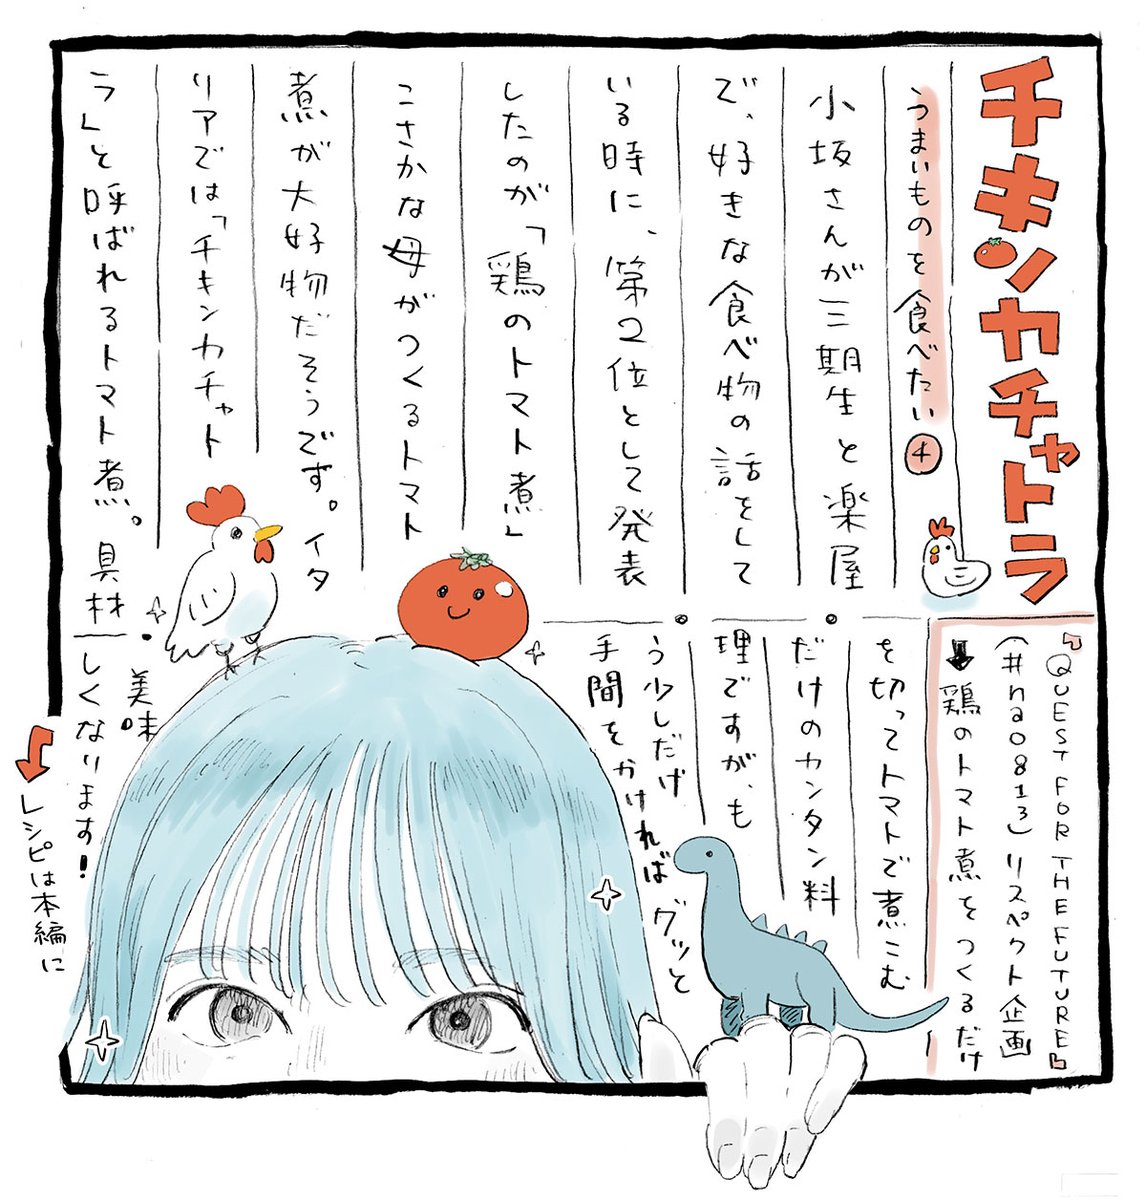 チキンカチャトラ
うまいものを食べたい④
小坂さんが三期生と楽屋
で、好きな食べ物の話をして
いる時に、第2位として発表
したのが「鶏のトマト煮」
こさかな母がつくるトマト
煮が大好物だそうです。イタ
リアでは「チキンカチャト
ラ」と呼ばれるトマト煮。具材
『QUEST FOR THE FUTURE』
(#nao813)リスペクト企画
↓鶏のトマト煮をつくるだけ
を切ってトマトで煮こむ
だけのカンタン料
理ですが、も
う少しだけ
手間をかければグッと
美味
しくなります!
レシピは本編に